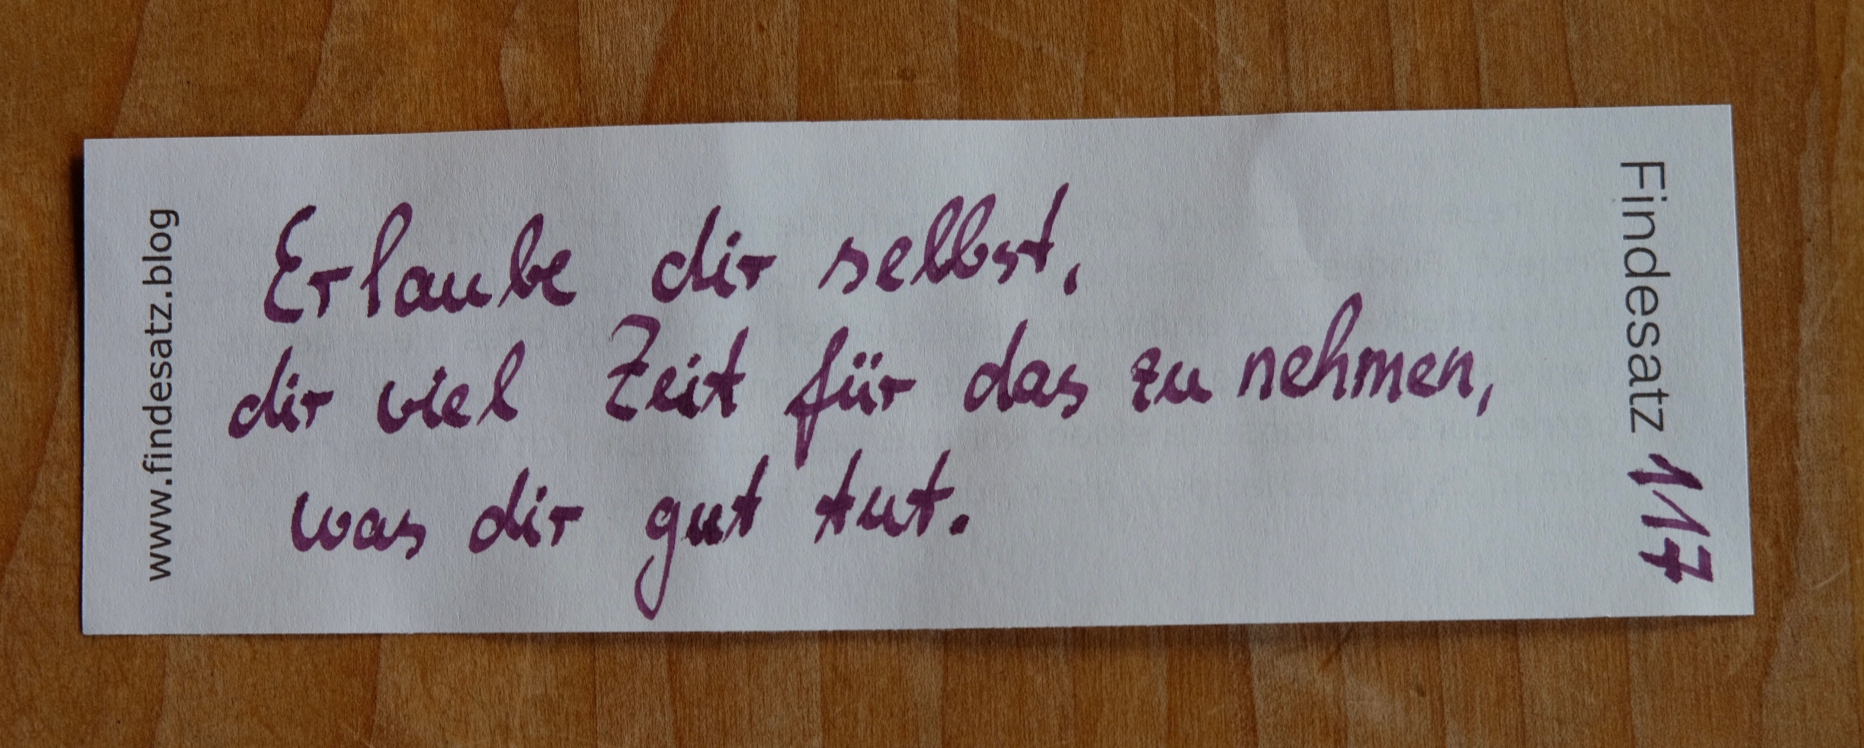 www.findesatz.blog
Erlaube dir selbst,
dir viel Zeit für das zu nehmen,
was dir gut tut.
Findesatz 117